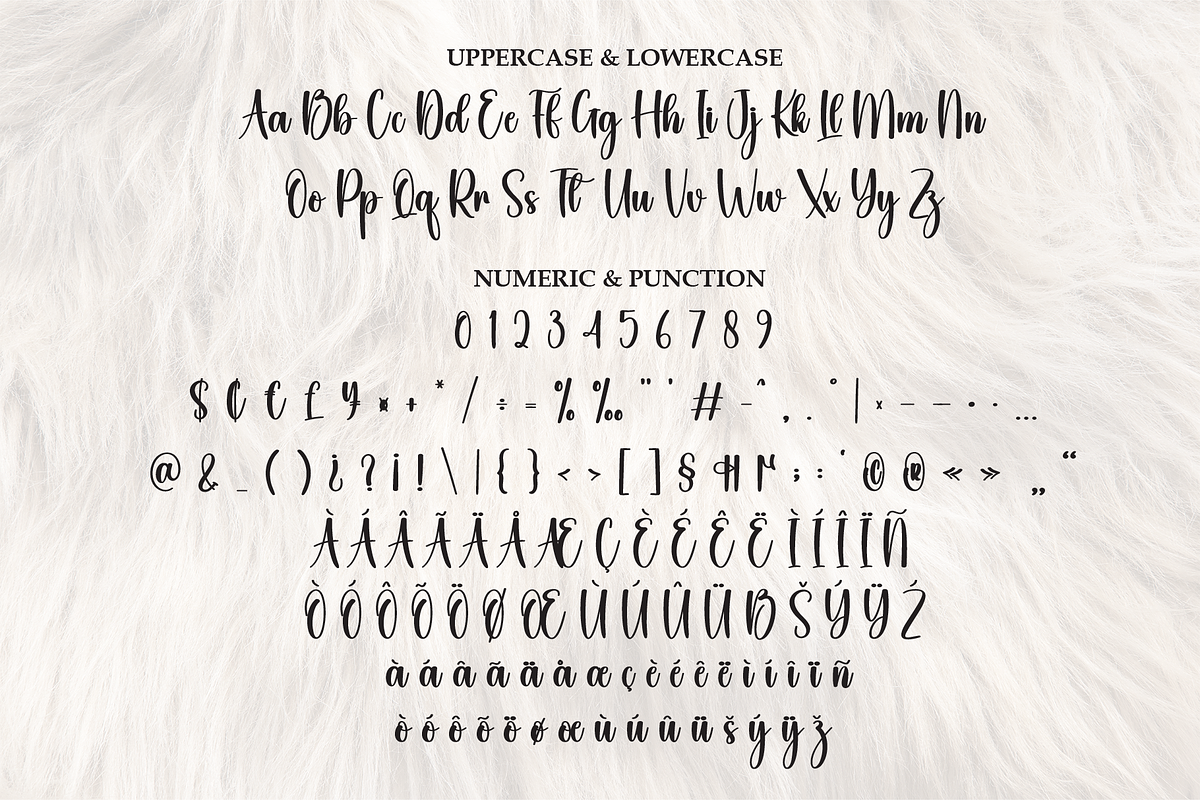 UPPERCASE & LOWERCASE
Aa Bb Cc Dd Ee Ff Gg Hh Ii Jj Kk Ll Mm Nn
Oo Pp Qq Rr Ss Tt Uu Vv Ww Xx Yy Zz
NUMERIC & PUNCTION
0 1 2 3 4 5 6 7 8 9
$ ¢ € £ ¥ ¤ + * / ÷ = % ‰ " ' # - ^ , . ° | × – — • · …
@ & _ ( ) ¿ ? ¡ ! \ | { } < > [ ] § ¶ µ ; : ‘ © ® « » „ “
À Á Â Ã Ä Å Æ Ç È É Ê Ë Ì Í Î Ï Ñ
Ò Ó Ô Õ Ö Ø Œ Ù Ú Û Ü Š Ý Ÿ
à á â ã ä å æ ç è é ê ë ì í î ï ñ
ò ó ô õ ö ø œ ù ú û ü š ý ÿ ž